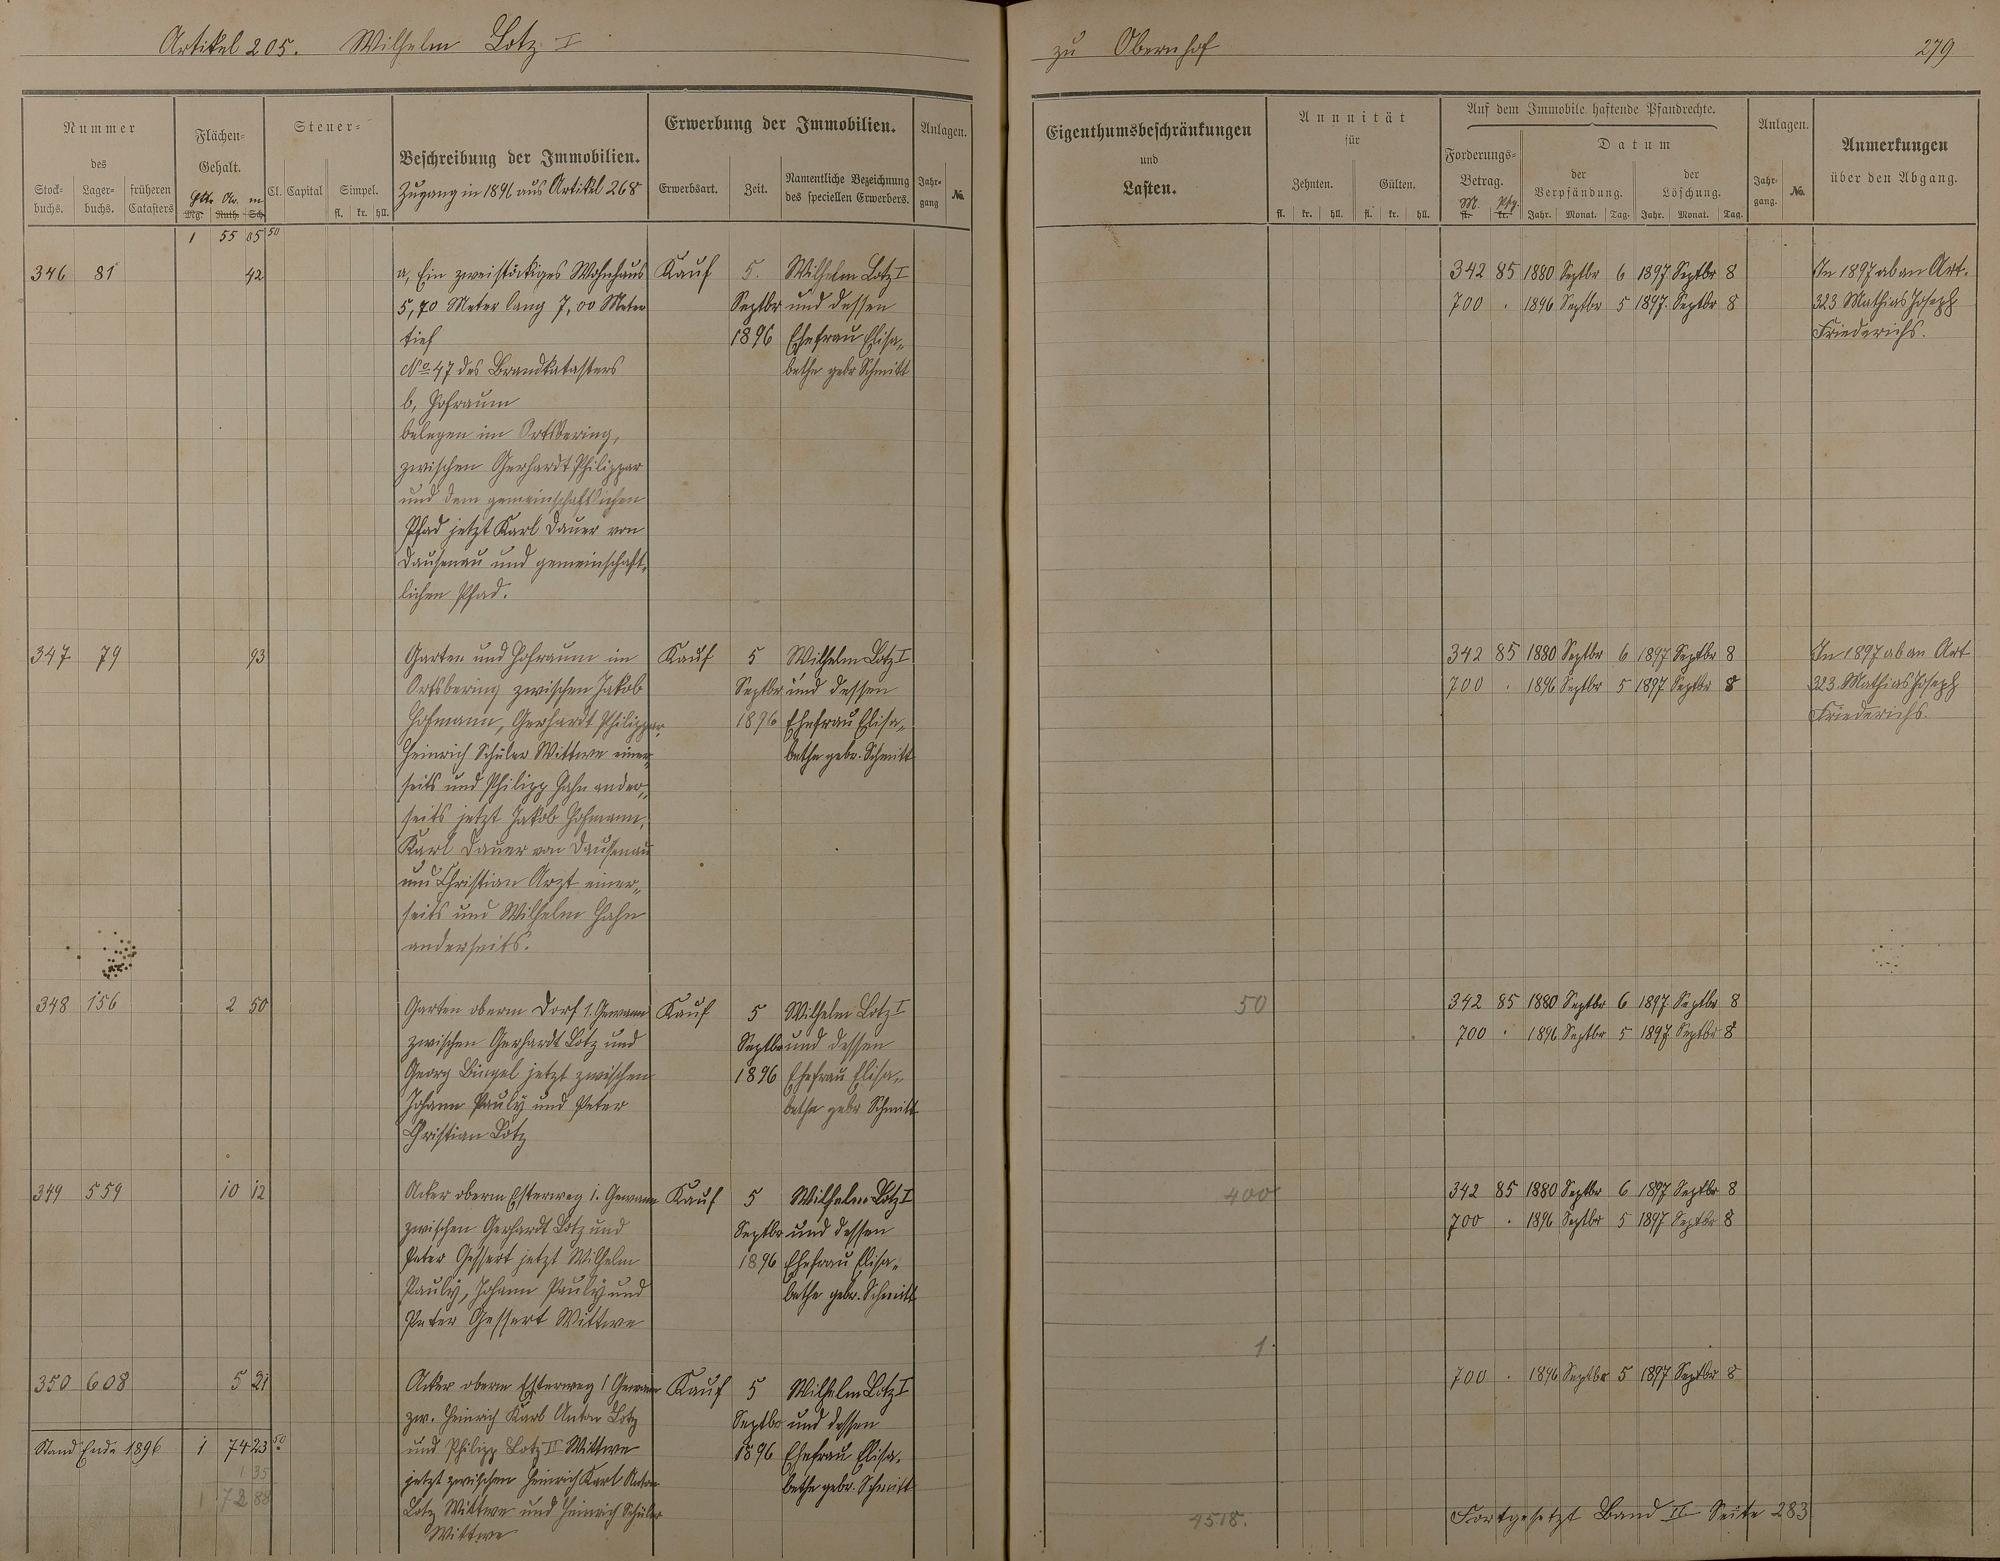 Artikel 205. Wilhelm Lotz I
zu Obernhof
279
Nummer
des
Stock-
buchs.
Lager-
buchs.
früheren
Catasters
Flächen-
Gehalt.
Htr. Ar. m
Mg. Ruth. Sch.
Steuer-
Cl. Capital Simpel.
fl. kr. hll.
Beschreibung der Immobilien.
Zugang in 1896 aus Artikel 268
Erwerbung der Immobilien.
Erwerbsart. Zeit.
Namentliche Bezeichnung
des speciellen Erwerbers.
Anlagen.
Jahr-
gang
No.
Eigenthumsbeschränkungen
und
Lasten.
Annuität
für
Zehnten. Gülten.
fl. kr. hll. fl. kr. hll.
Auf dem Immobile haftende Pfandrechte.
Forderungs-
Betrag.
M. Pfg.
fl. kr.
Datum
der
Verpfändung.
der
Löschung.
Jahr. Monat. Tag. Jahr. Monat. Tag.
Anlagen.
Jahr-
gang.
No.
Anmerkungen
über den Abgang.
1 55 05 50
346 81 42
a, Ein zweistöckiges Wohnhaus
5,70 Meter lang 7,00 Meter
tief
No 47 des Brandkatasters
b, Hofraum
belegen im Ortsbering,
zwischen Gerhardt Philippar
und dem gemeinschaftlichen
Pfad jetzt Karl Dauer von
Dausenau und gemeinschaft-
lichen Pfad.
Kauf
5.
Septbr
1896
Wilhelm Lotz I
und dessen
Ehefrau Elisa-
betha gebr Schmitt
342 85 1880 Septbr 6 1897 Septbr 8
700 . 1896 Septbr 5 1897. Septbr 8
In 1897 ab an Art.
323 Mathias Joseph
Friederichs.
347 79 93
Garten und Hofraum im
Ortsbering zwischen Jakob
Hofmann, Gerhardt Philippar,
Heinrich Schüler Wittwe einer-
seits und Philipp Hahn ander-
seits jetzt Jakob Hofmann,
Karl Dauer von Dausenau
und Christian Arzt einer-
seits und Wilhelm Hahn
anderseits.
Kauf
5
Septbr
1896
Wilhelm Lotz I
und dessen
Ehefrau Elisa-
betha gebr. Schmitt
342 85 1880 Septbr 6 1897 Septbr 8
700 . 1896 Septbr 5 1897. Septbr 8
In 1897 ab an Art
323. Mathias Joseph
Friederichs.
348 156 2 50
Garten oberm Dorf 1. Gewann
zwischen Gerhardt Lotz und
Georg Bingel jetzt zwischen
Johann Pauly und Peter
Christian Lotz
Kauf
5
Septbr
1896
Wilhelm Lotz I
und dessen
Ehefrau Elisa-
betha gebr Schmitt
50
342 85 1880 Septbr 6 1897. Septbr 8
700 . 1896 Septbr 5 1897. Septbr 8
349 559 10 12
Acker oberm Esterweg 1. Gewann
zwischen Gerhardt Lotz und
Peter Gessert jetzt Wilhelm
Pauly, Johann Pauly und
Peter Gessert Wittwe
Kauf
5
Septbr
1896
Wilhelm Lotz I
und dessen
Ehefrau Elisa-
betha gebr. Schmitt
400
342 85 1880 Septbr 6 1897 Septbr 8
700 . 1896 Septbr 5 1897 Septbr 8
1
350 608 5 21
Acker oberm Esterweg 1 Gewann
zw. Heinrich Karl Anton Lotz
und Philipp Lotz II Wittwe
jetzt zwischen Heinrich Karl Anton
Lotz Wittwe und Heinrich Schüler
Wittwe
Kauf
5
Septbr
1896
Wilhelm Lotz I
und dessen
Ehefrau Elisa-
betha gebr. Schmitt
700 . 1896 Septbr 5 1897 Septbr 8
Stand Ende 1896 1 74 23 50
1 35
1 72 88
4518.
Fortgesetzt Band II Seite 283